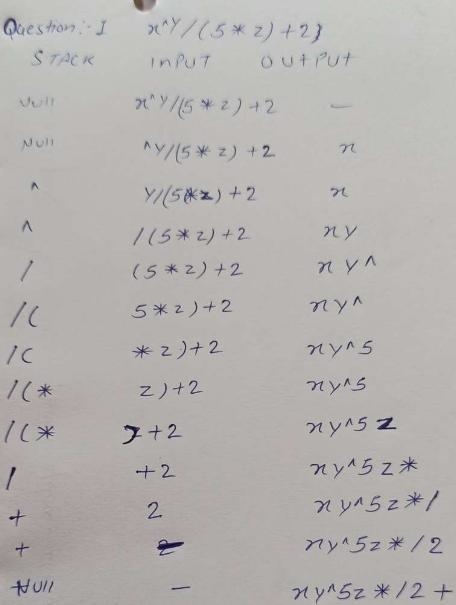 Question:- I x^y/(5*z)+2}
STACK INPUT OUTPUT
Null x^y/(5*z)+2 —
Null ^y/(5*z)+2 x
^ y/(5*z)+2 x
^ /(5*z)+2 xy
/ (5*z)+2 xy^
/( 5*z)+2 xy^
/( *z)+2 xy^5
/(* z)+2 xy^5
/(* )+2 xy^5z
/ +2 xy^5z*
+ 2 xy^5z*/
+ xy^5z*/2
Null — xy^5z*/2+